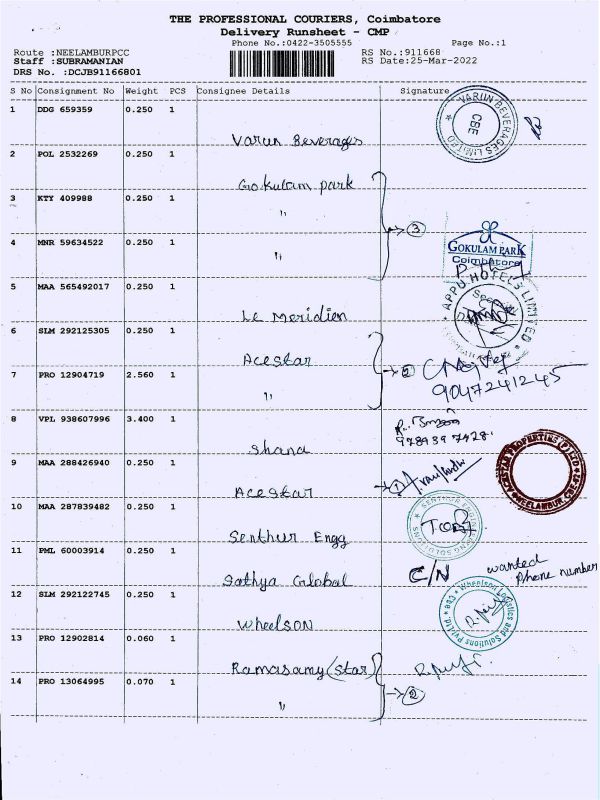 THE PROFESSIONAL COURIERS, Coimbatore
Delivery Runsheet - CMP
Phone No.:0422-3505555 Page No.:1
Route :NEELAMBURPCC RS No.:911668
Staff :SUBRAMANIAN RS Date:25-Mar-2022
DRS No. :DCJB91166801
S No Consignment No Weight PCS Consignee Details Signature
1 DDG 659359 0.250 1
Varun Beverages
VARUN BEVERAGES LIMITED CBE
2 POL 2532269 0.250 1
Gokulam park
3 KTY 409988 0.250 1
"
→ 3
4 MNR 59634522 0.250 1
"
GOKULAM PARK
Coimbatore
5 MAA 565492017 0.250 1
Le Meridien
APPU HOTELS LIMITED
6 SLM 292125305 0.250 1
Acestar
7 PRO 12904719 2.560 1
"
9047241245
8 VPL 938607996 3.400 1
Shana
9 MAA 288426940 0.250 1
Acestar
ACESTAR PROPERTIES (P) LTD NEELAMBUR
10 MAA 287839482 0.250 1
Senthur Engg
SENTHUR ENGINEERING SOLUTIONS
11 PML 60003914 0.250 1
Sathya Global
C/N wanted
Phone number
12 SLM 292122745 0.250 1
Wheelson
Wheelson Logistics and Solutions Pvt Ltd CBE
13 PRO 12902814 0.060 1
Ramasamy (star)
14 PRO 13064995 0.070 1
"
→ 2